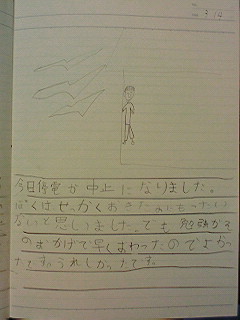 3/14
今日停電が中止になりました。
ぼくはせっかくおきたのにもったい
ないと思いました。でも勉強がそ
のおかげで早くおわったのでよかっ
たですうれしかったです。